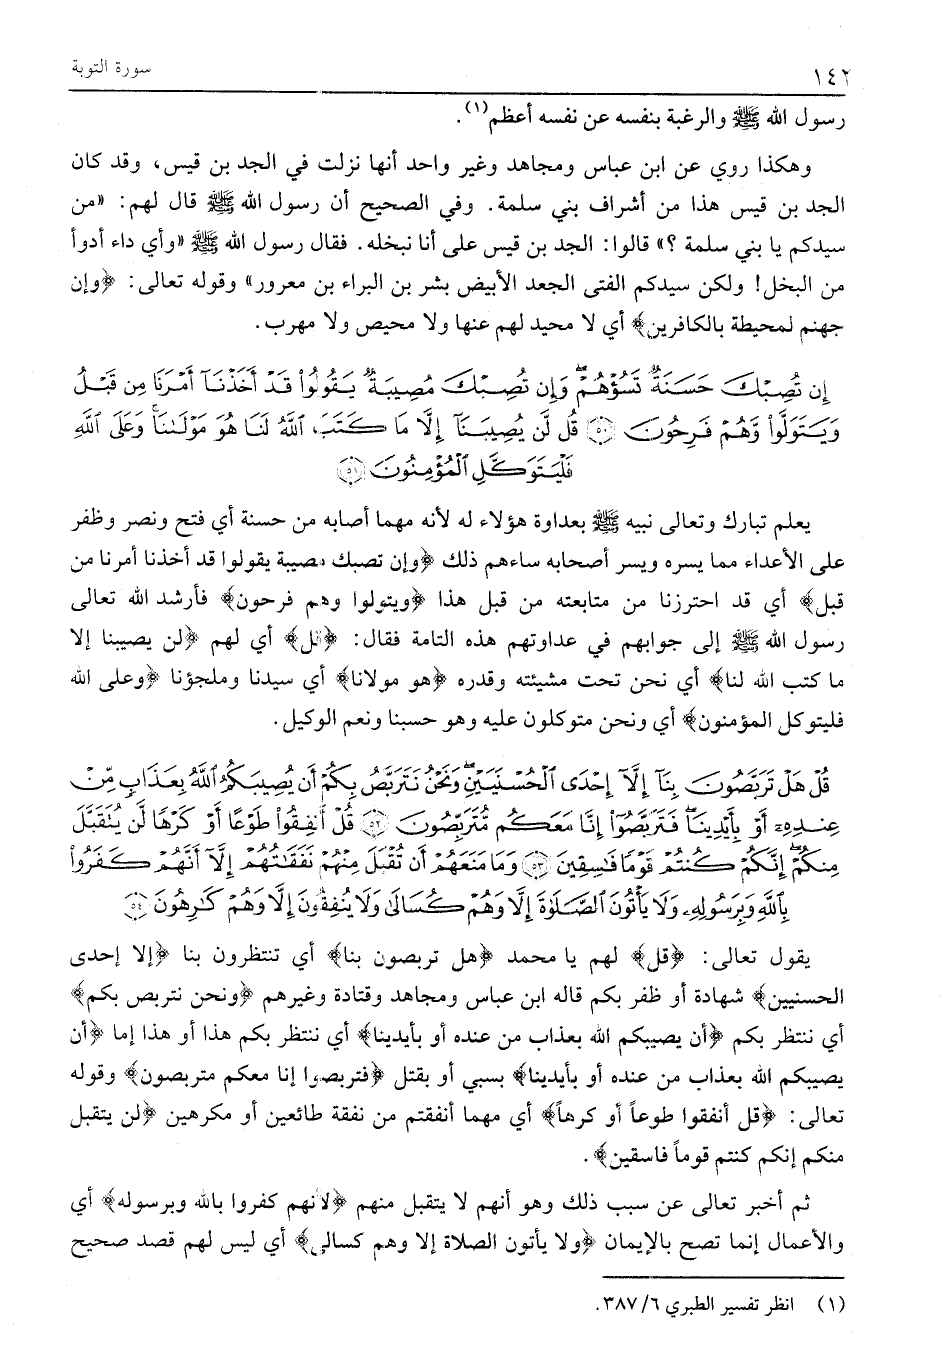 ١٤٢ سورة التوبة
رسول الله ﷺ والرغبة بنفسه عن نفسه أعظم(١).
وهكذا روي عن ابن عباس ومجاهد وغير واحد أنها نزلت في الجد بن قيس، وقد كان
الجد بن قيس هذا من أشراف بني سلمة. وفي الصحيح أن رسول الله ﷺ قال لهم: «من
سيدكم يا بني سلمة ؟» قالوا: الجد بن قيس على أنا نبخله. فقال رسول الله ﷺ «وأي داء أدوأ
من البخل! ولكن سيدكم الفتى الجعد الأبيض بشر بن البراء بن معرور» وقوله تعالى: ﴿وإن
جهنم لمحيطة بالكافرين﴾ أي لا محيد لهم عنها ولا محيص ولا مهرب.
إِن تُصِبْكَ حَسَنَةٌ تَسُؤْهُمْ ۖ وَإِن تُصِبْكَ مُصِيبَةٌ يَقُولُوا۟ قَدْ أَخَذْنَآ أَمْرَنَا مِن قَبْلُ
وَيَتَوَلَّوا۟ وَّهُمْ فَرِحُونَ ﴿٥٠﴾ قُل لَّن يُصِيبَنَآ إِلَّا مَا كَتَبَ ٱللَّهُ لَنَا هُوَ مَوْلَىٰنَا ۚ وَعَلَى ٱللَّهِ
فَلْيَتَوَكَّلِ ٱلْمُؤْمِنُونَ ﴿٥١﴾
يعلم تبارك وتعالى نبيه ﷺ بعداوة هؤلاء له لأنه مهما أصابه من حسنة أي فتح ونصر وظفر
على الأعداء مما يسره ويسر أصحابه ساءهم ذلك ﴿وإن تصبك مصيبة يقولوا قد أخذنا أمرنا من
قبل﴾ أي قد احترزنا من متابعته من قبل هذا ﴿ويتولوا وهم فرحون﴾ فأرشد الله تعالى
رسول الله ﷺ إلى جوابهم في عداوتهم هذه التامة فقال: ﴿قل﴾ أي لهم ﴿لن يصيبنا إلا
ما كتب الله لنا﴾ أي نحن تحت مشيئته وقدره ﴿هو مولانا﴾ أي سيدنا وملجؤنا ﴿وعلى الله
فليتوكل المؤمنون﴾ أي ونحن متوكلون عليه وهو حسبنا ونعم الوكيل.
قُلْ هَلْ تَرَبَّصُونَ بِنَآ إِلَّآ إِحْدَى ٱلْحُسْنَيَيْنِ ۖ وَنَحْنُ نَتَرَبَّصُ بِكُمْ أَن يُصِيبَكُمُ ٱللَّهُ بِعَذَابٍ مِّنْ
عِندِهِۦٓ أَوْ بِأَيْدِينَا ۖ فَتَرَبَّصُوٓا۟ إِنَّا مَعَكُم مُّتَرَبِّصُونَ ﴿٥٢﴾ قُلْ أَنفِقُوا۟ طَوْعًا أَوْ كَرْهًا لَّن يُتَقَبَّلَ
مِنكُمْ ۖ إِنَّكُمْ كُنتُمْ قَوْمًا فَـٰسِقِينَ ﴿٥٣﴾ وَمَا مَنَعَهُمْ أَن تُقْبَلَ مِنْهُمْ نَفَقَـٰتُهُمْ إِلَّآ أَنَّهُمْ كَفَرُوا۟
بِٱللَّهِ وَبِرَسُولِهِۦ وَلَا يَأْتُونَ ٱلصَّلَوٰةَ إِلَّا وَهُمْ كُسَالَىٰ وَلَا يُنفِقُونَ إِلَّا وَهُمْ كَـٰرِهُونَ ﴿٥٤﴾
يقول تعالى: ﴿قل﴾ لهم يا محمد ﴿هل تربصون بنا﴾ أي تنتظرون بنا ﴿إلا إحدى
الحسنيين﴾ شهادة أو ظفر بكم قاله ابن عباس ومجاهد وقتادة وغيرهم ﴿ونحن نتربص بكم﴾
أي ننتظر بكم ﴿أن يصيبكم الله بعذاب من عنده أو بأيدينا﴾ أي ننتظر بكم هذا أو هذا إما ﴿أن
يصيبكم الله بعذاب من عنده أو بأيدينا﴾ بسبي أو بقتل ﴿فتربصوا إنا معكم متربصون﴾ وقوله
تعالى: ﴿قل أنفقوا طوعاً أو كرهاً﴾ أي مهما أنفقتم من نفقة طائعين أو مكرهين ﴿لن يتقبل
منكم إنكم كنتم قوماً فاسقين﴾.
ثم أخبر تعالى عن سبب ذلك وهو أنهم لا يتقبل منهم ﴿لأنهم كفروا بالله وبرسوله﴾ أي
والأعمال إنما تصح بالإيمان ﴿ولا يأتون الصلاة إلا وهم كسالى﴾ أي ليس لهم قصد صحيح
(١) انظر تفسير الطبري ٦/ ٣٨٧.